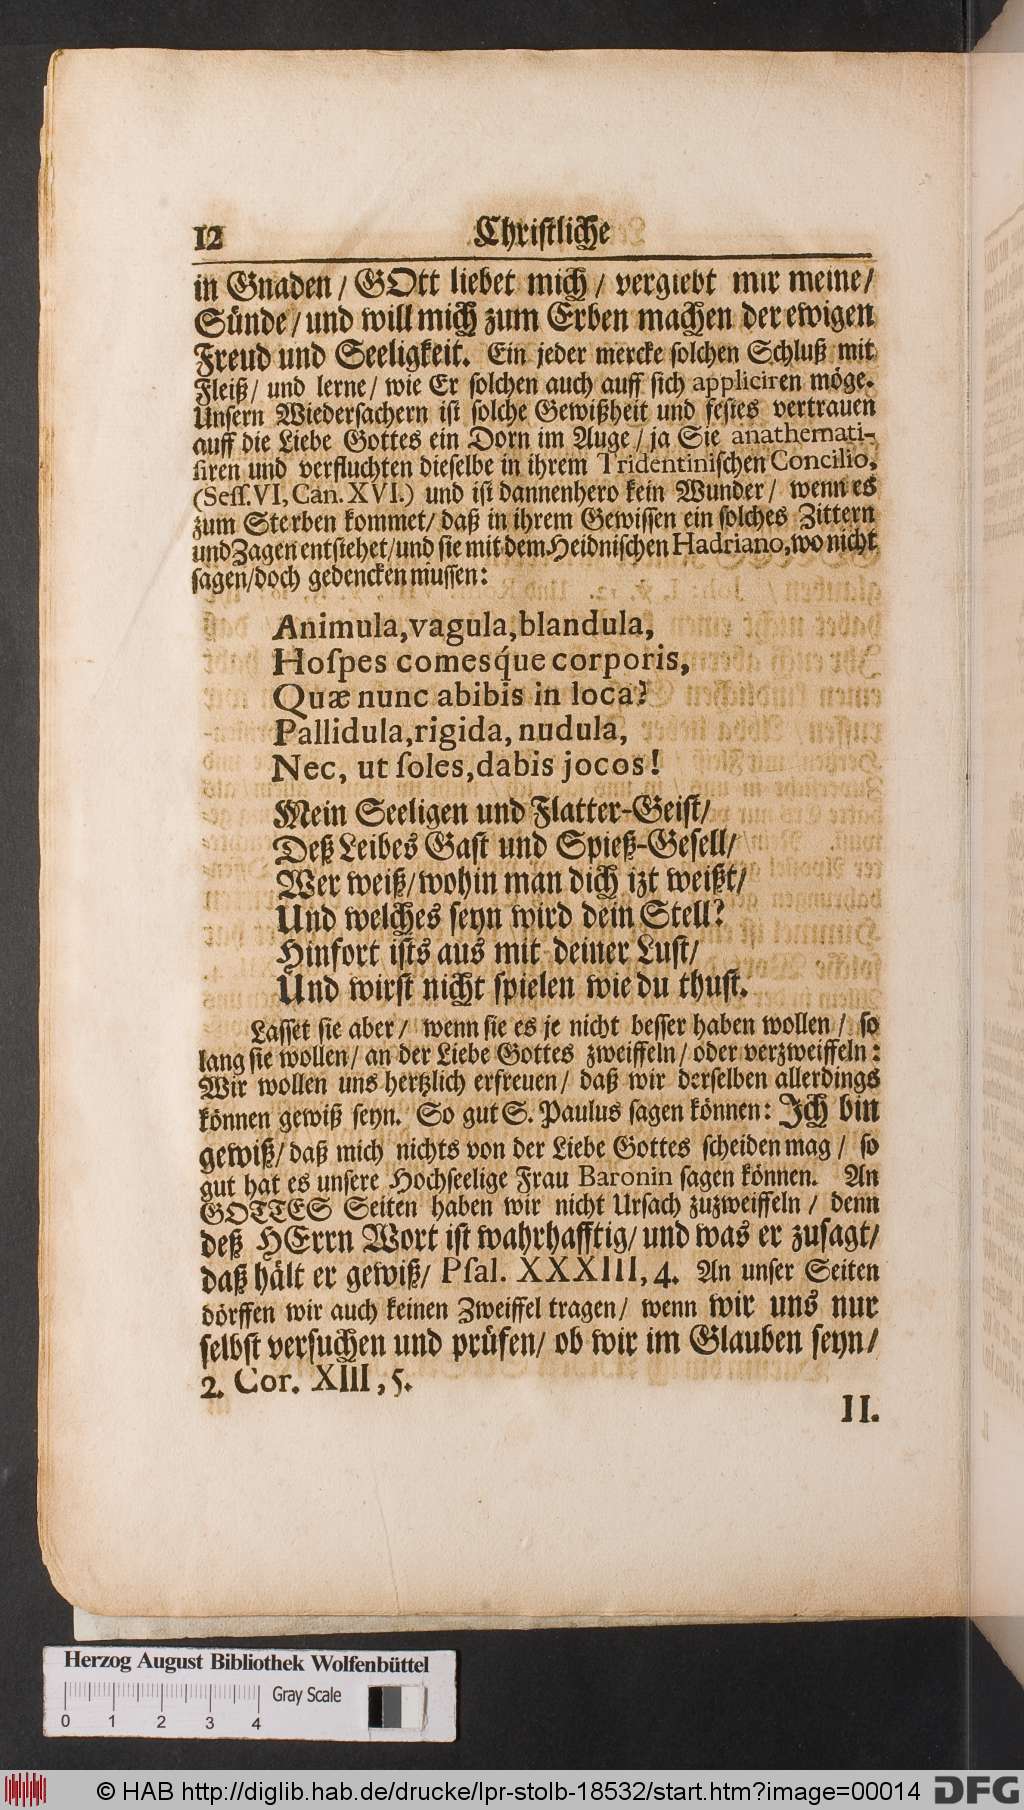 12 Christliche
in Gnaden / GOtt liebet mich / vergiebt mir meine /
Sünde / und will mich zum Erben machen der ewigen
Freud und Seeligkeit. Ein jeder mercke solchen Schluß mit
Fleiß / und lerne / wie Er solchen auch auff sich appliciren möge.
Unsern Wiedersachern ist solche Gewißheit und festes vertrauen
auff die Liebe Gottes ein Dorn im Auge / ja Sie anathemati-
siren und verfluchten dieselbe in ihrem Tridentinischen Concilio,
(Sess. VI, Can. XVI.) und ist dannenhero kein Wunder / wenn es
zum Sterben kommet / daß in ihrem Gewissen ein solches Zittern
und Zagen entstehet / und sie mit dem Heidnischen Hadriano, wo nicht
sagen / doch gedencken mussen:
Animula, vagula, blandula,
Hoſpes comesq́ue corporis,
Quæ nunc abibis in loca?
Pallidula, rigida, nudula,
Nec, ut ſoles, dabis jocos!
Mein Seeligen und Flatter-Geist /
Deß Leibes Gast und Spieß-Gesell /
Wer weiß / wohin man dich izt weißt /
Und welches seyn wird dein Stell?
Hinfort ists aus mit deiner Lust /
Und wirst nicht spielen wie du thust.
Lasset sie aber / wenn sie es je nicht besser haben wollen / so
lang sie wollen / an der Liebe Gottes zweiffeln / oder verzweiffeln:
Wir wollen uns hertzlich erfreuen / daß wir derselben allerdings
können gewiß seyn. So gut S. Paulus sagen können: Ich bin
gewiß / daß mich nichts von der Liebe Gottes scheiden mag / so
gut hat es unsere Hochseelige Frau Baronin sagen können. An
GOTTES Seiten haben wir nicht Ursach zuzweiffeln / denn
deß HErrn Wort ist wahrhafftig / und was er zusagt /
daß hält er gewiß / Psal. XXXIII, 4. An unser Seiten
dörffen wir auch keinen Zweiffel tragen / wenn wir uns nur
selbst versuchen und prüfen / ob wir im Glauben seyn /
2. Cor. XIII, 5.
II.
Herzog August Bibliothek Wolfenbüttel
Gray Scale
0 1 2 3 4
© HAB http://diglib.hab.de/drucke/lpr-stolb-18532/start.htm?image=00014 DFG